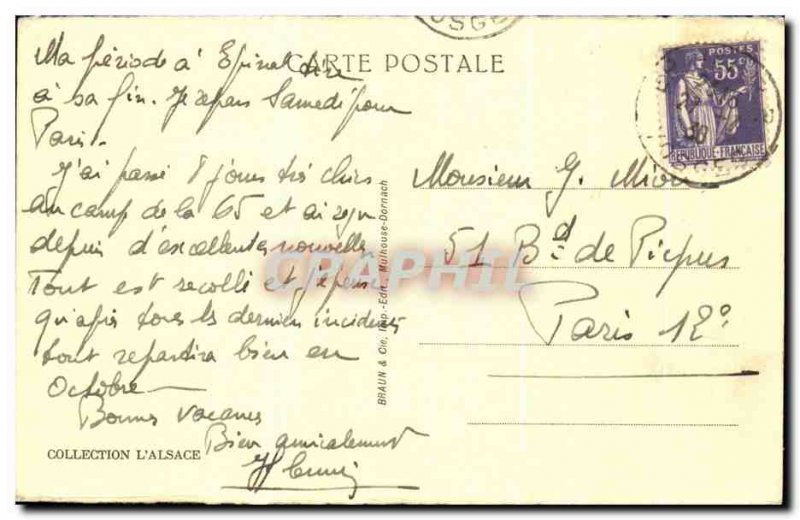 OSGE
CARTE POSTALE
POSTES
55c
REPUBLIQUE-FRANÇAISE
Ma période à Epinal tire
à sa fin. Je repars Samedi pour
Paris.
J'ai passé 8 jours très chics
au camp de la 65 et ai reçu
depuis d'excellentes nouvelles
Tout est recollé et je pense
qu'après tous les derniers incidents
tout repartira bien en
Octobre
Bonnes vacances
Bien amicalement
Monsieur G.
51 Bd de Picpus
Paris 12e
BRAUN & Cie, Imp.-Edit., Mulhouse-Dornach
COLLECTION L'ALSACE
GRAPHIL